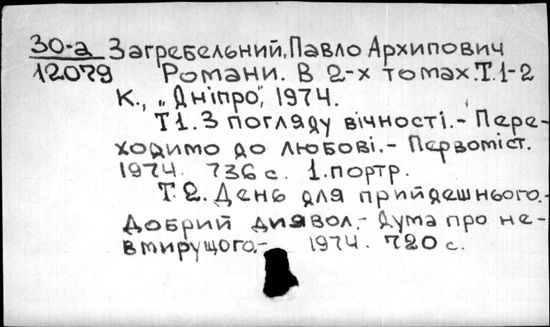 30-а Загребельний, Павло Архипович
12079 Романи. В 2-х томах. Т.1-2
К., „Дніпро", 1974.
Т1. З погляду вічності.- Пере-
ходимо до любові.- Первоміст.
1974. 736 с. 1.портр.
Т.2. День для прийдешнього.-
Добрий диявол.- Дума про не-
вмирущого.- 1974. 720 с.